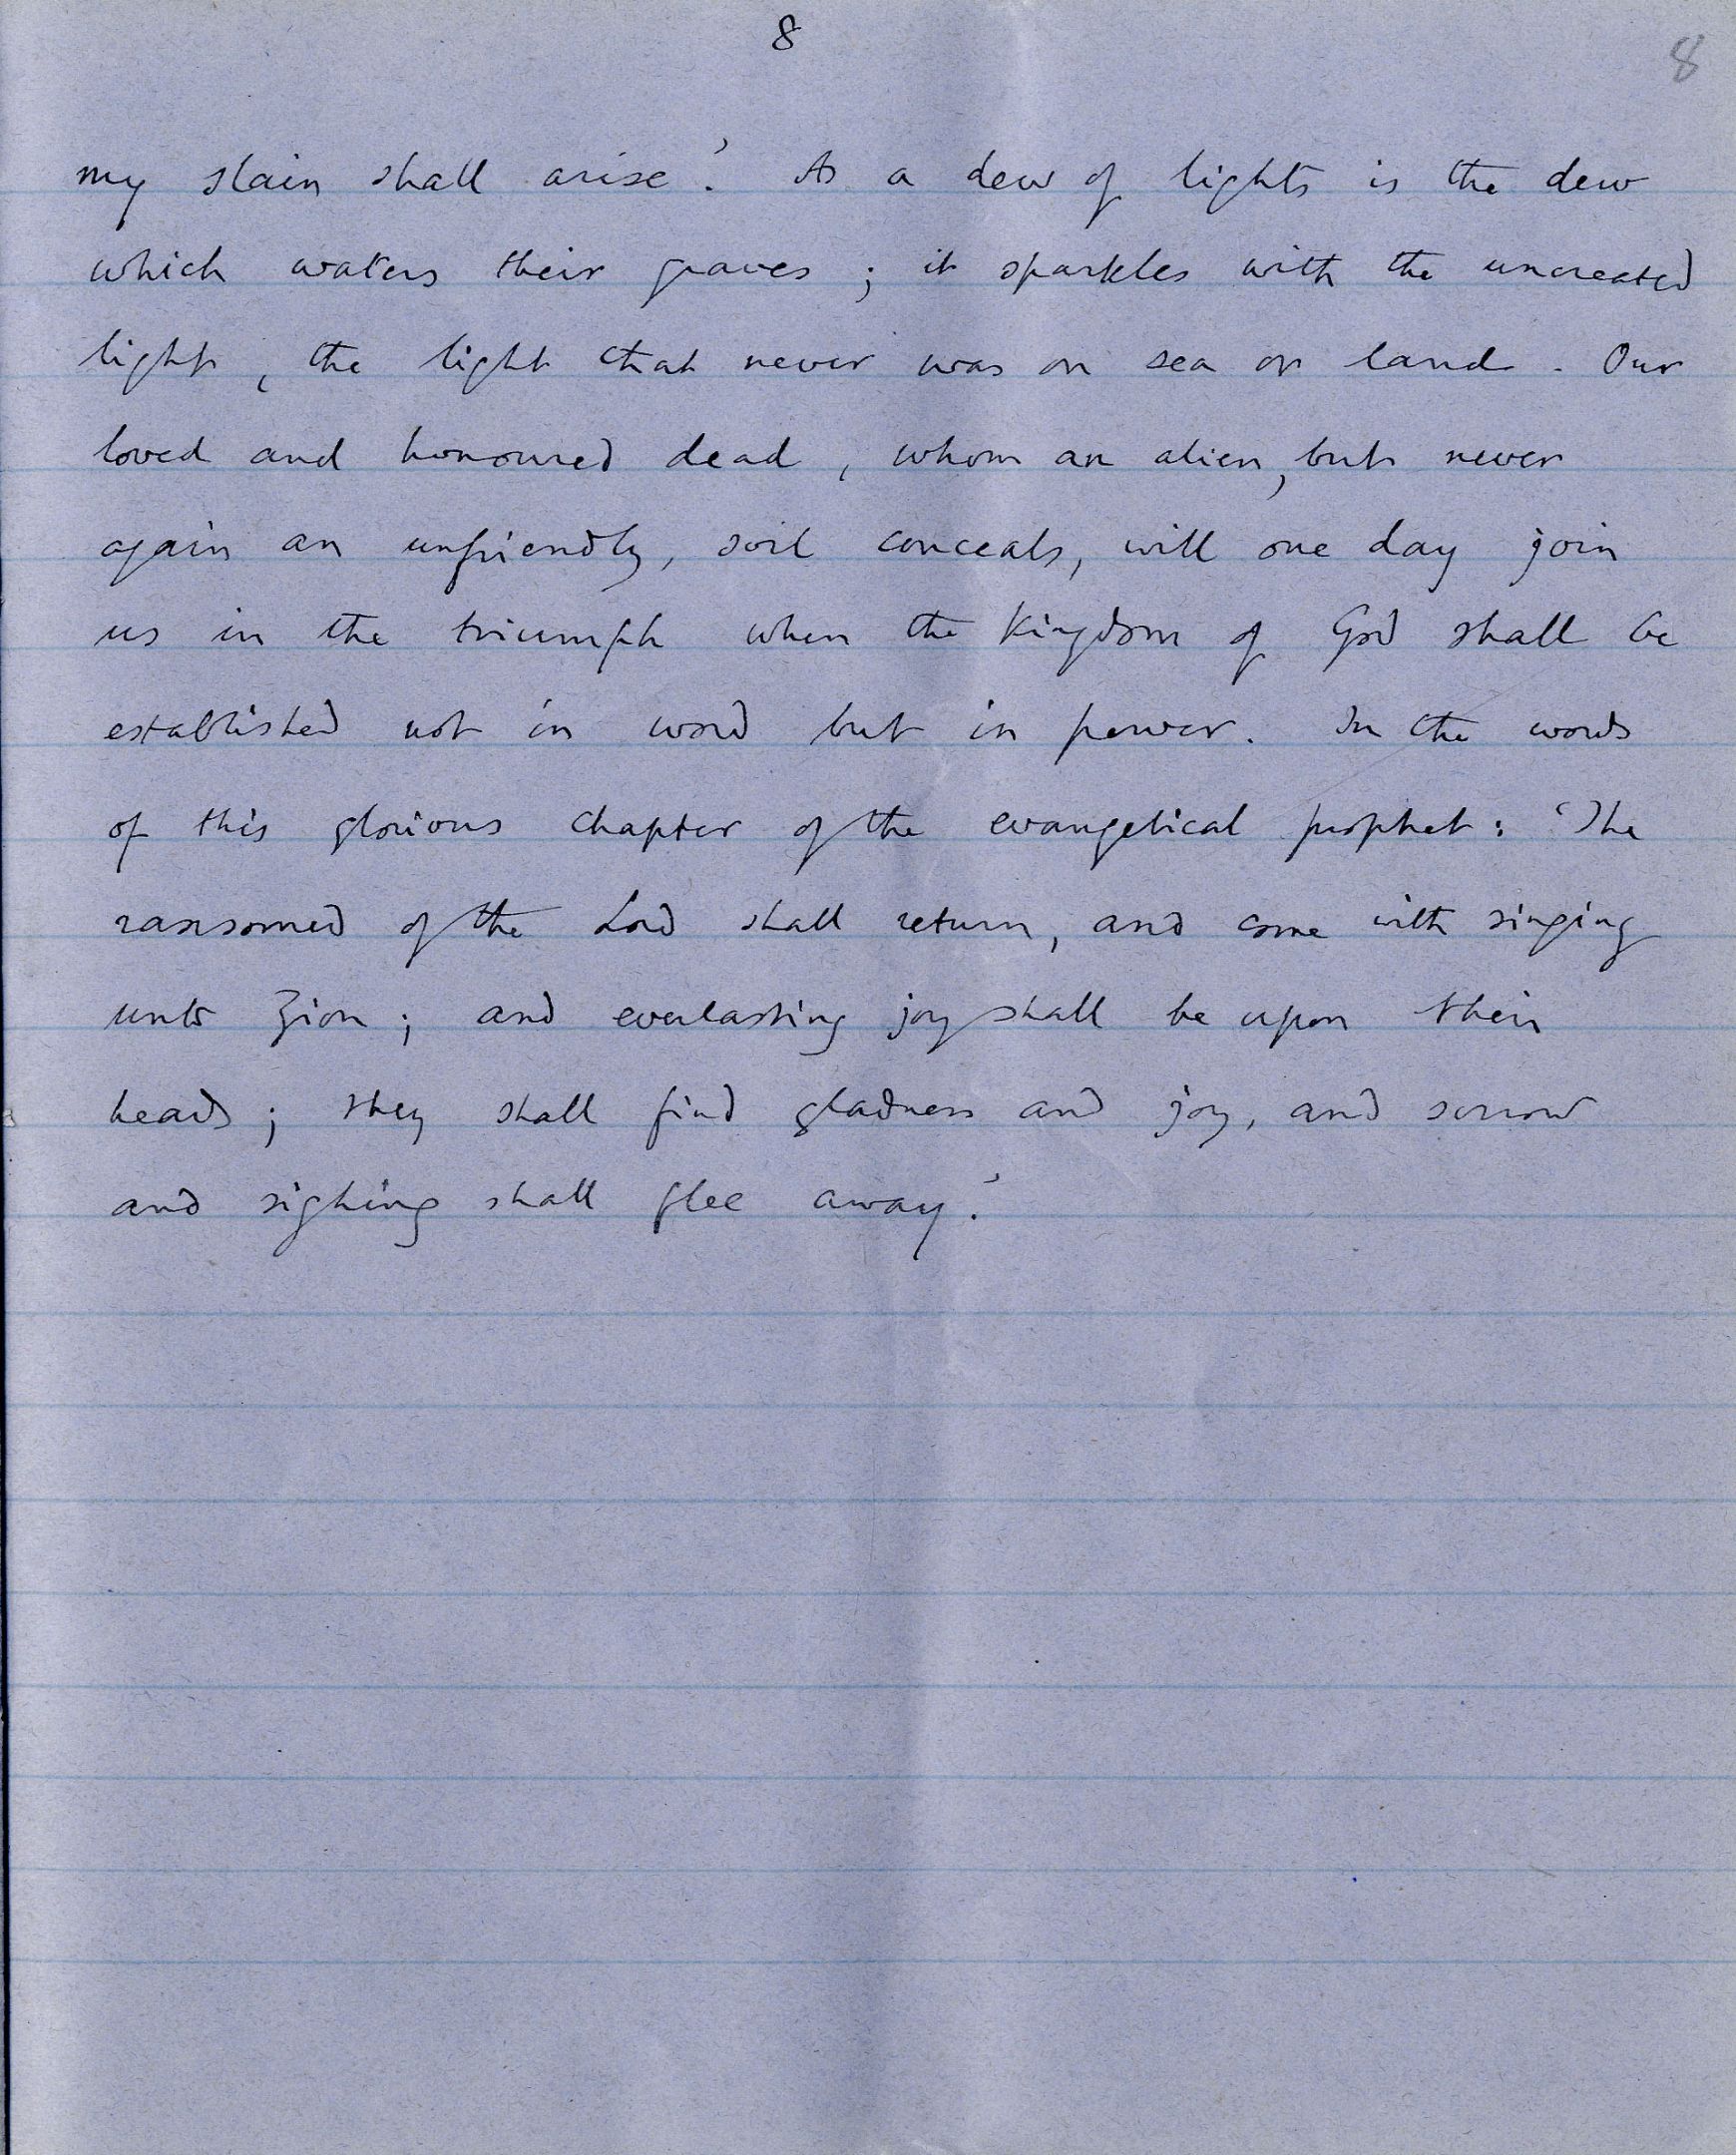 8
8
my slain shall arise.' As a dew of lights is the dew
which waters their graves; it sparkles with the uncreated
light, the light that never was on sea or land. Our
loved and honoured dead, whom an alien, but never
again an unfriendly, soil conceals, will one day join
us in the triumph when the Kingdom of God shall be
established not in word but in power. In the words
of this glorious chapter of the evangelical prophet: 'The
ransomed of the Lord shall return, and come with singing
unto Zion; and everlasting joy shall be upon their
heads; they shall find gladness and joy, and sorrow
and sighing shall flee away.'